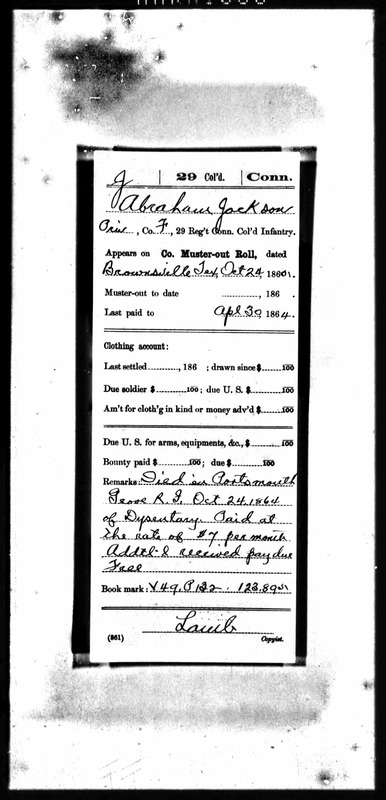 J | 29 Col'd. | Conn.
Abraham Jackson
Priv., Co. F, 29 Reg't Conn. Col'd Infantry.
Appears on Co. Muster-out Roll, dated
Brownsville Tex, Oct 24, 1865.
Muster-out to date ............, 186 .
Last paid to Apl 30, 1864.
Clothing account:
Last settled ..........., 186 ; drawn since $ ........100
Due soldier $ ..........100; due U. S. $ ........100
Am't for cloth'g in kind or money adv'd $ ........100
Due U. S. for arms, equipments, &c., $ ........100
Bounty paid $ ..........100; due $ ........100
Remarks: Died in Portsmouth
Grove R. I. Oct 24. 1864
of Dysentary. Paid at
the rate of $7 per month
Addtl & received pay due
Free
Book mark: V 49. P 132
Lamb
(361) Copyist.